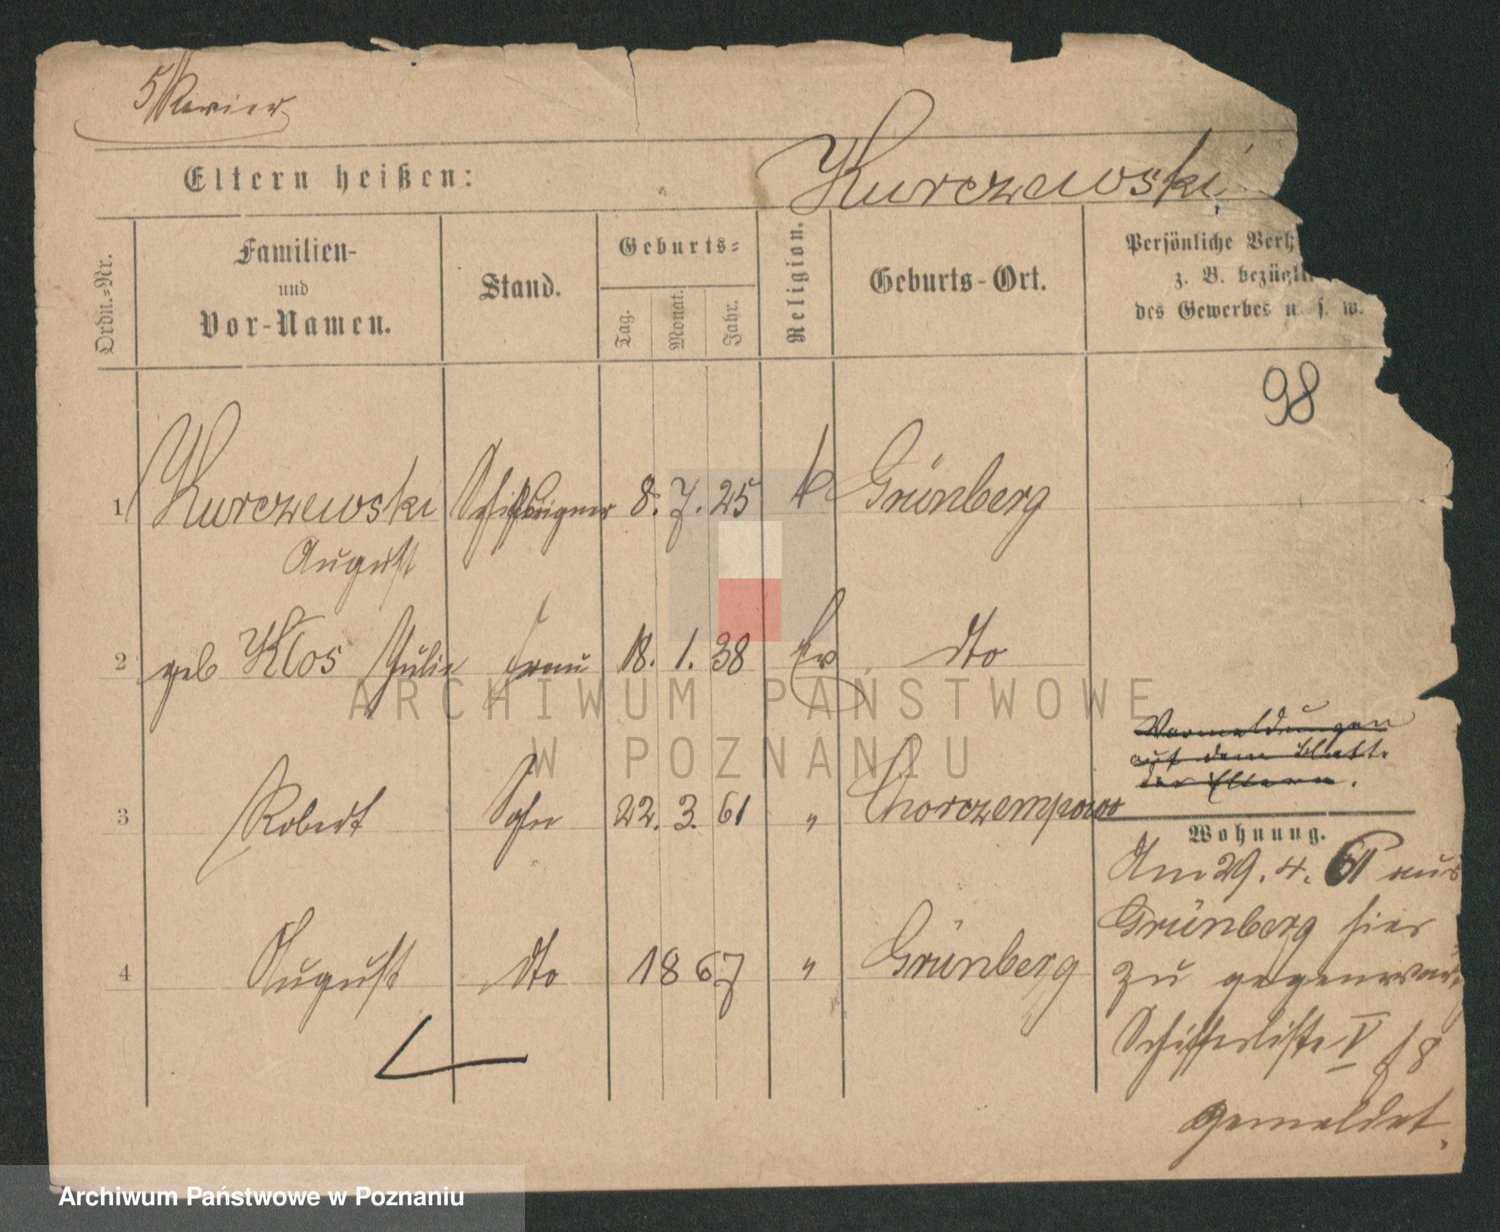 5 Revier
Eltern heißen: Kurczewski
Ordn.-Nr.
Familien-
und
Vor-Namen.
Stand.
Geburts-
Tag. Monat. Jahr.
Religion.
Geburts-Ort.
Persönliche Verh
z. B. bezügli
des Gewerbes u. s. w.
98
1 Kurczewski Schiffseigner 8. 7. 25 k Grünberg
August
2 geb Klos Julie Frau 18. 1. 38 Ev dto
Vormeldungen
auf dem Blatt
der Eltern.
3 Robert Sohn 22. 3. 61 "
Wohnung.
Am 29. 4. 61 aus
Grünberg hier
4 August dto 1867 " Grünberg
zu gegenwär
Schifferliste V f 8
gemeldet.
ARCHIWUM PAŃSTWOWE
W POZNANIU
Archiwum Państwowe w Poznaniu